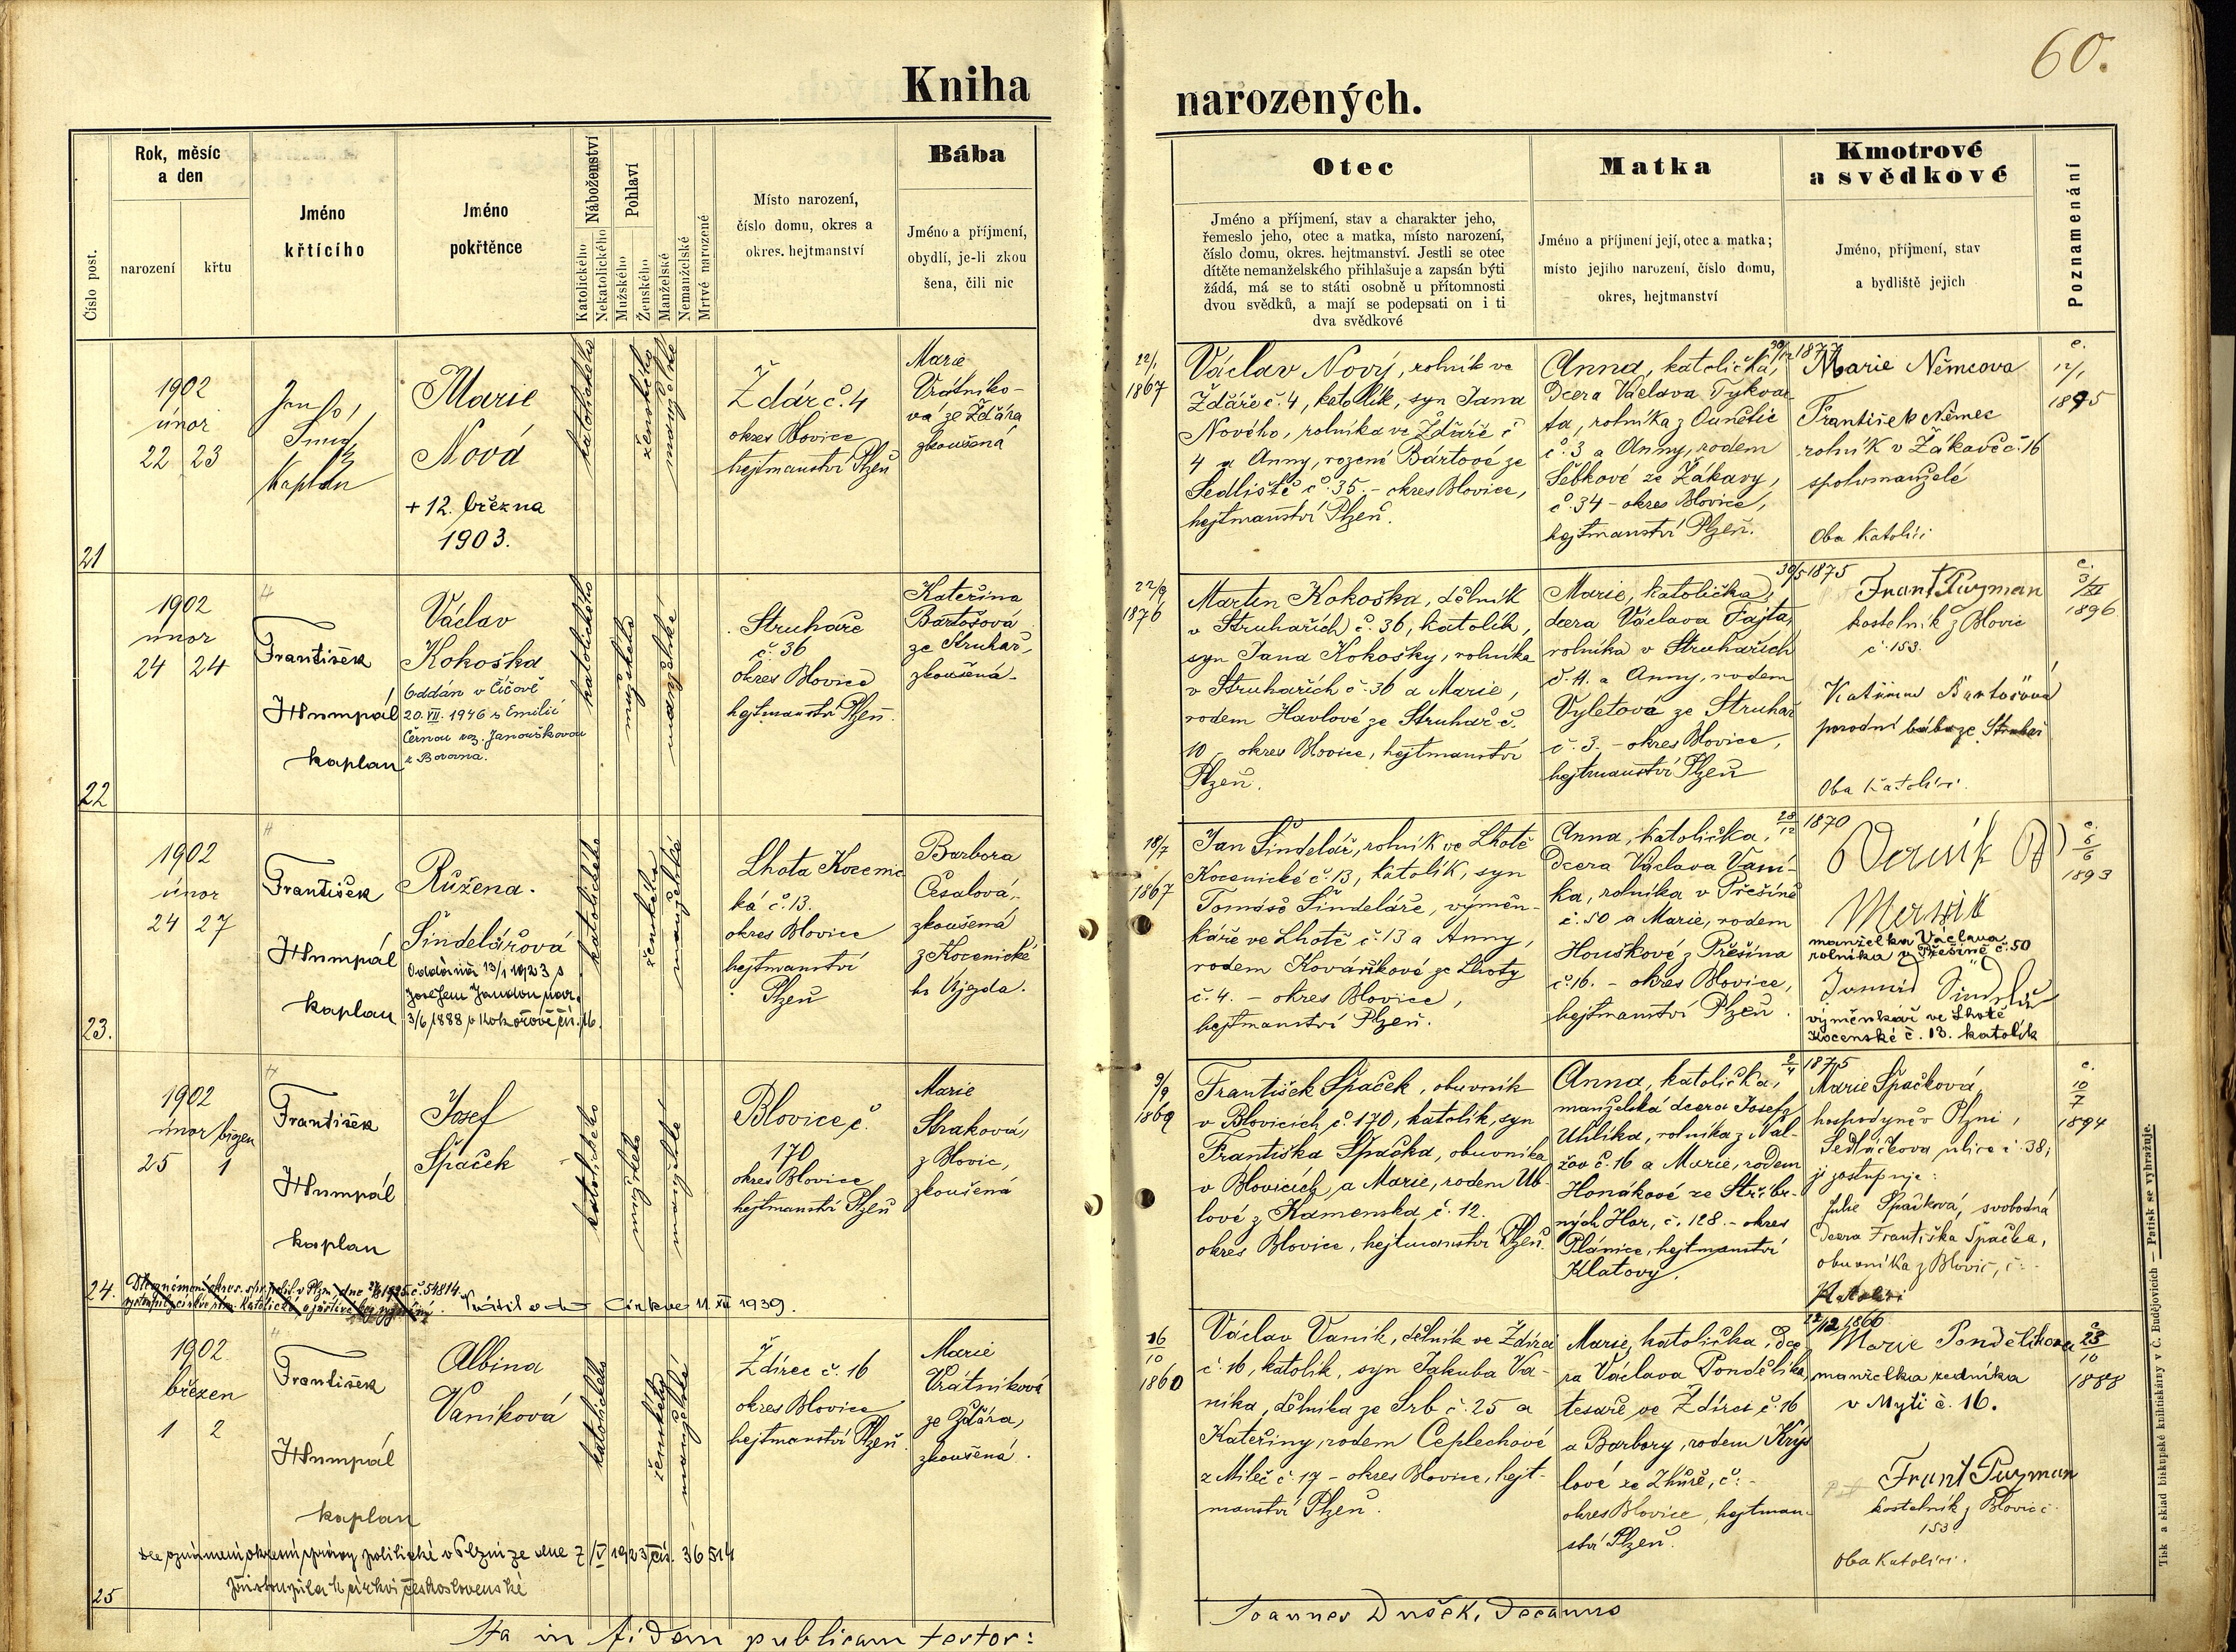 60.
Kniha
narozených.
Číslo post.
Rok, měsíc
a den
narození
křtu
Jméno
křtícího
Jméno
pokřtěnce
Náboženství
Katolického
Nekatolického
Pohlaví
Mužského
Ženského
Manželské
Nemanželské
Mrtvě narozené
Místo narození,
číslo domu, okres a
okres. hejtmanství
Bába
Jméno a příjmení,
obydlí, je-li zkou
šena, čili nic
Otec
Jméno a příjmení, stav a charakter jeho,
řemeslo jeho, otec a matka, místo narození,
číslo domu, okres. hejtmanství. Jestli se otec
dítěte nemanželského přihlašuje a zapsán býti
žádá, má se to státi osobně u přítomnosti
dvou svědků, a mají se podepsati on i ti
dva svědkové
Matka
Jméno a příjmení její, otec a matka;
místo jejího narození, číslo domu,
okres, hejtmanství
Kmotrové
a svědkové
Jméno, příjmení, stav
a bydliště jejich
Poznamenání
21
1902
únor
22 23
Kaplan
Marie
Nová
+ 12. března
1903.
katolického
ženského
manželské
Ždár č. 4
okres Blovice
hejtmanství Plzeň
Marie
Vrátníko-
vá ze Žďára
zkoušená
22/1
1867
Václav Nový, rolník ve
Žďáře č. 4, katolík, syn Jana
Nového, rolníka ve Žďáře č
4 a Anny, rozené Bártové ze
Sedliště č. 35. - okres Blovice,
hejtmanství Plzeň.
Anna, katolička,
dcera Václava Tykvar-
ta, rolníka z Ounětic
č. 3 a Anny, rodem
Šebkové ze Žákavy,
č. 34 - okres Blovice,
hejtmanství Plzeň.
Marie Němcova
František Němec
rolník v Žákavě č. 16
spolumanželé
Oba katolíci
c.
12/1
1895
22
1902
únor
24 24
František
Humpál
kaplan
Václav
Kokoška
Oddán v Čížově
20. VII. 1946 s Emilií
Černou roz. Janouškovou
z Borovna.
katolického
mužského
manželské
Struhaře
č. 36
okres Blovice
hejtmanství Plzeň.
Kateřina
Bartošová
ze Struhař,
zkoušená.
22/9
1876
Martin Kokoška, dělník
v Struhařích č. 36, katolík,
syn Jana Kokošky, rolníka
v Struhařích č. 36 a Marie,
rodem Havlové ze Struhař č.
10 - okres Blovice, hejtmanství
Plzeň.
30/5 1875
Marie, katolička,
dcera Václava Fajta,
rolníka v Struhařích
č. 11. a Anny, rodem
Vyletové ze Struhař
č. 3. - okres Blovice,
hejtmanství Plzeň
Frant Puzman
kostelník z Blovic
č. 153.
Kateřina Bartošová
porodní bába ze Struhař
Oba katolíci.
c.
3/XI
1896
23.
1902
únor
24 27
František
Humpál
kaplan
Růžena.
Šindelářová
Oddána 13/1 1923 s
Josefem Jandou nar.
3/6 1888 v Kokořově čís. 16.
katolického
ženského
manželské
Lhota Kocenic
ká č. 13.
okres Blovice
hejtmanství
Plzeň
Barbora
Česalová,
zkoušená
z Kocenické
ho Újezda.
18/7
1867
Jan Šindelář, rolník ve Lhotě
Kocenické č. 13, katolík, syn
Tomáše Šindeláře, výměn-
káře ve Lhotě č. 13 a Anny,
rodem Kováříkové ze Lhoty
č. 4. - okres Blovice,
hejtmanství Plzeň.
28/12 1870
Anna, katolička,
dcera Václava Vaní-
ka, rolníka v Přešíně
č. 50 a Marie, rodem
Houškové z Přešína
č. 16. - okres Blovice,
hejtmanství Plzeň.
manželka Václava
rolníka v Přešíně č. 50
výměnkář ve Lhotě
Kocenské č. 13. katolík
c.
6/6
1893
24.
1902
únor/březen
25 1
František
Humpál
kaplan
Josef
Špaček
katolického
mužského
manželské
Blovice č.
170
okres Blovice
hejtmanství Plzeň
Marie
Straková,
z Blovic,
zkoušená
9/9
1869
František Špaček, obuvník
v Blovicích č. 170, katolík, syn
Františka Špačka, obuvníka
v Blovicích, a Marie, rodem Ub-
lové z Kamenska č. 12.
okres Blovice, hejtmanství Plzeň.
2/4 1875
Anna, katolička,
manželská dcera Josefa
Uhlíka, rolníka z Nal-
žov č. 16 a Marie, rodem
Honákové ze Stříbr-
ných Hor, č. 128. - okres
Plánice, hejtmanství
Klatovy.
Marie Špačková,
hospodyně v Plzni,
Sedláčkova ulice č. 38,
ji zastupuje:
Julie Špačková, svobodná
dcera Františka Špačka,
obuvníka z Blovic, č:-
Katolíci
c.
10/7
1894
Vrátil se do Církve 11. XII 1939.
25
1902
březen
1 2
František
Humpál
kaplan
Albina
Vaníková
katolického
ženského
manželské
Ždírec č. 16
okres Blovice
hejtmanství Plzeň.
Marie
Vrátníková
ze Žďára,
zkoušená.
26/10
1860
Václav Vaník, dělník ve Ždírci
č. 16, katolík, syn Jakuba Va-
níka, dělníka ze Srb č. 25 a
Kateřiny, rodem Ceplechové
z Mileč č. 17 - okres Blovice, hejt-
manství Plzeň.
22/12 1866
Marie, katolička, dce-
ra Václava Pondělíka,
tesaře ve Ždírci č. 16
a Barbory, rodem Krýs
lové ze Zhůře, č:-
okres Blovice, hejtman-
ství Plzeň.
Marie Pondělíkova
manželka zedníka
v Mýti č. 16.
Frant Puzman
kostelník z Blovic č
153
Oba Katolíci.
c.
23/10
1888
Dle oznámení okresní správy politické v Plzni ze dne 7/IV 1923 čís. 36514
přistoupila k církvi československé
Ita in fidem publicam testor:
Joannes Dušek, Decanus
Tisk a sklad biskupské knihtiskárny v Č. Budějovicích — Patisk se vyhražuje.